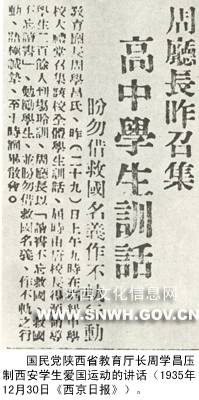 周廳長昨召集
高中學生訓話
盼勿借救國名義作不
動
教育廳長周學昌氏、昨(二十九)日上午九時在
校大禮堂召集該校全體學生訓話、屆時由
學生百餘人到場聆訓、周廳長以「讀書不忘救國
讀書」、勉勵學生、並盼勿借救國名義、作不軌之行
動、至十時許畢散會。
陕西文化信息网
WWW.SNWH.GOV.CN
国民党陕西省教育厅长周学昌压
制西安学生爱国运动的讲话（1935年
12月30日《西京日报》）。